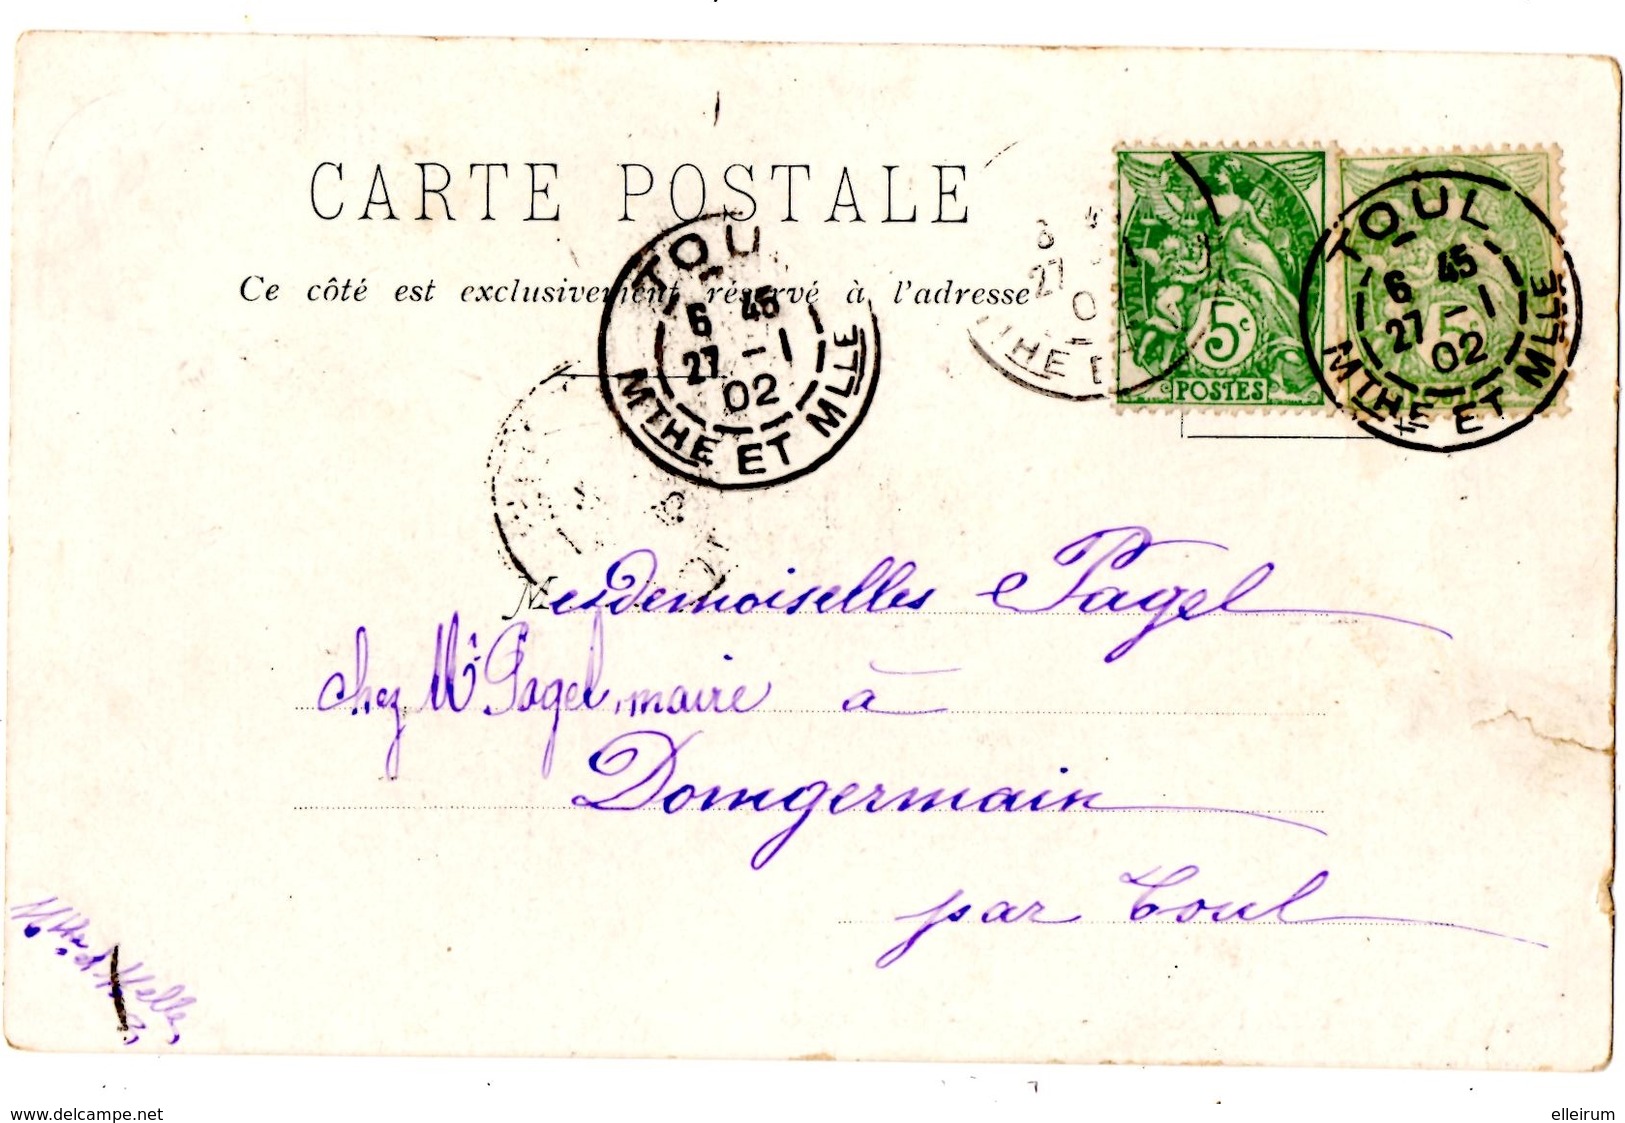 CARTE POSTALE
Ce côté est exclusivement réservé à l'adresse
TOUL
6 45
27 -1
02
MTHE ET MLLE
5c
POSTES
TOUL
6 45
27 -1
02
MTHE ET MLLE
Mesdemoiselles Pagel
chez Mr Pagel, maire à
Domgermain
par Toul
Mthe &
www.delcampe.net
elleirum